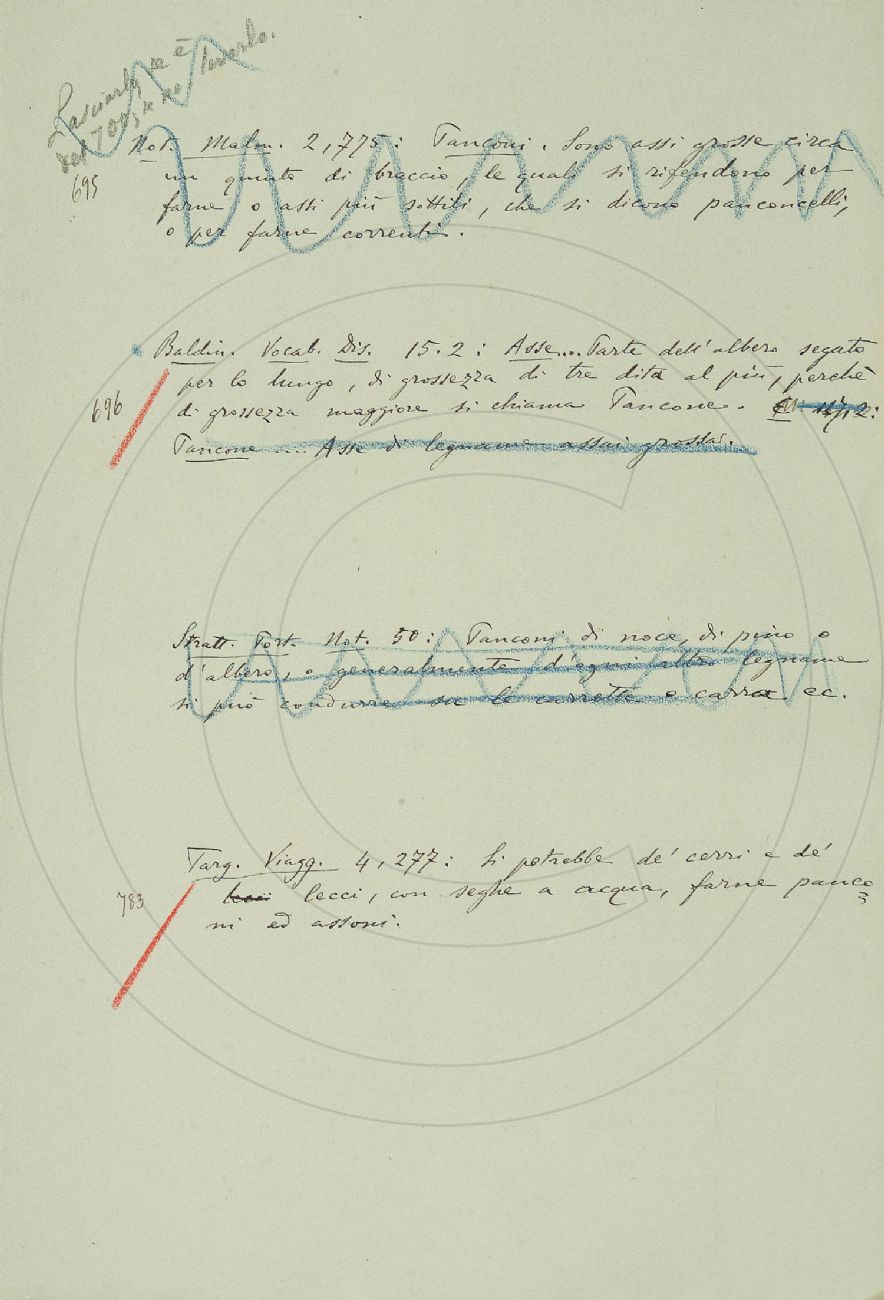 Lasciarlo se è
del 700; se no, levarlo.
Not. Malm. 2, 775: Panconi. Sono assi grosse circa
695
un quinto di braccio, le quali si rifendono per
farne o assi più sottili, che si dicono panconcelli,
o per farne correnti.
Baldin. Vocab. Dis. 15.2: Asse.... Parte dell'albero segato
per lo lungo, di grossezza di tre dita al più, perchè
696
di grossezza maggiore si chiama Pancone. 2:
Pancone .... Asse di legname assai grossa.
Stratt. Port. Not. 50: Panconi di noce, di pino o
d'albero, o generalmente d'ogni altro legname
si può condurre su le carrette e carra ec.
Targ. Viagg. 4, 277: Si potrebbe de' cerri e de'
783
lecci lecci, con seghe a acqua, farne panco=
ni ed assoni.